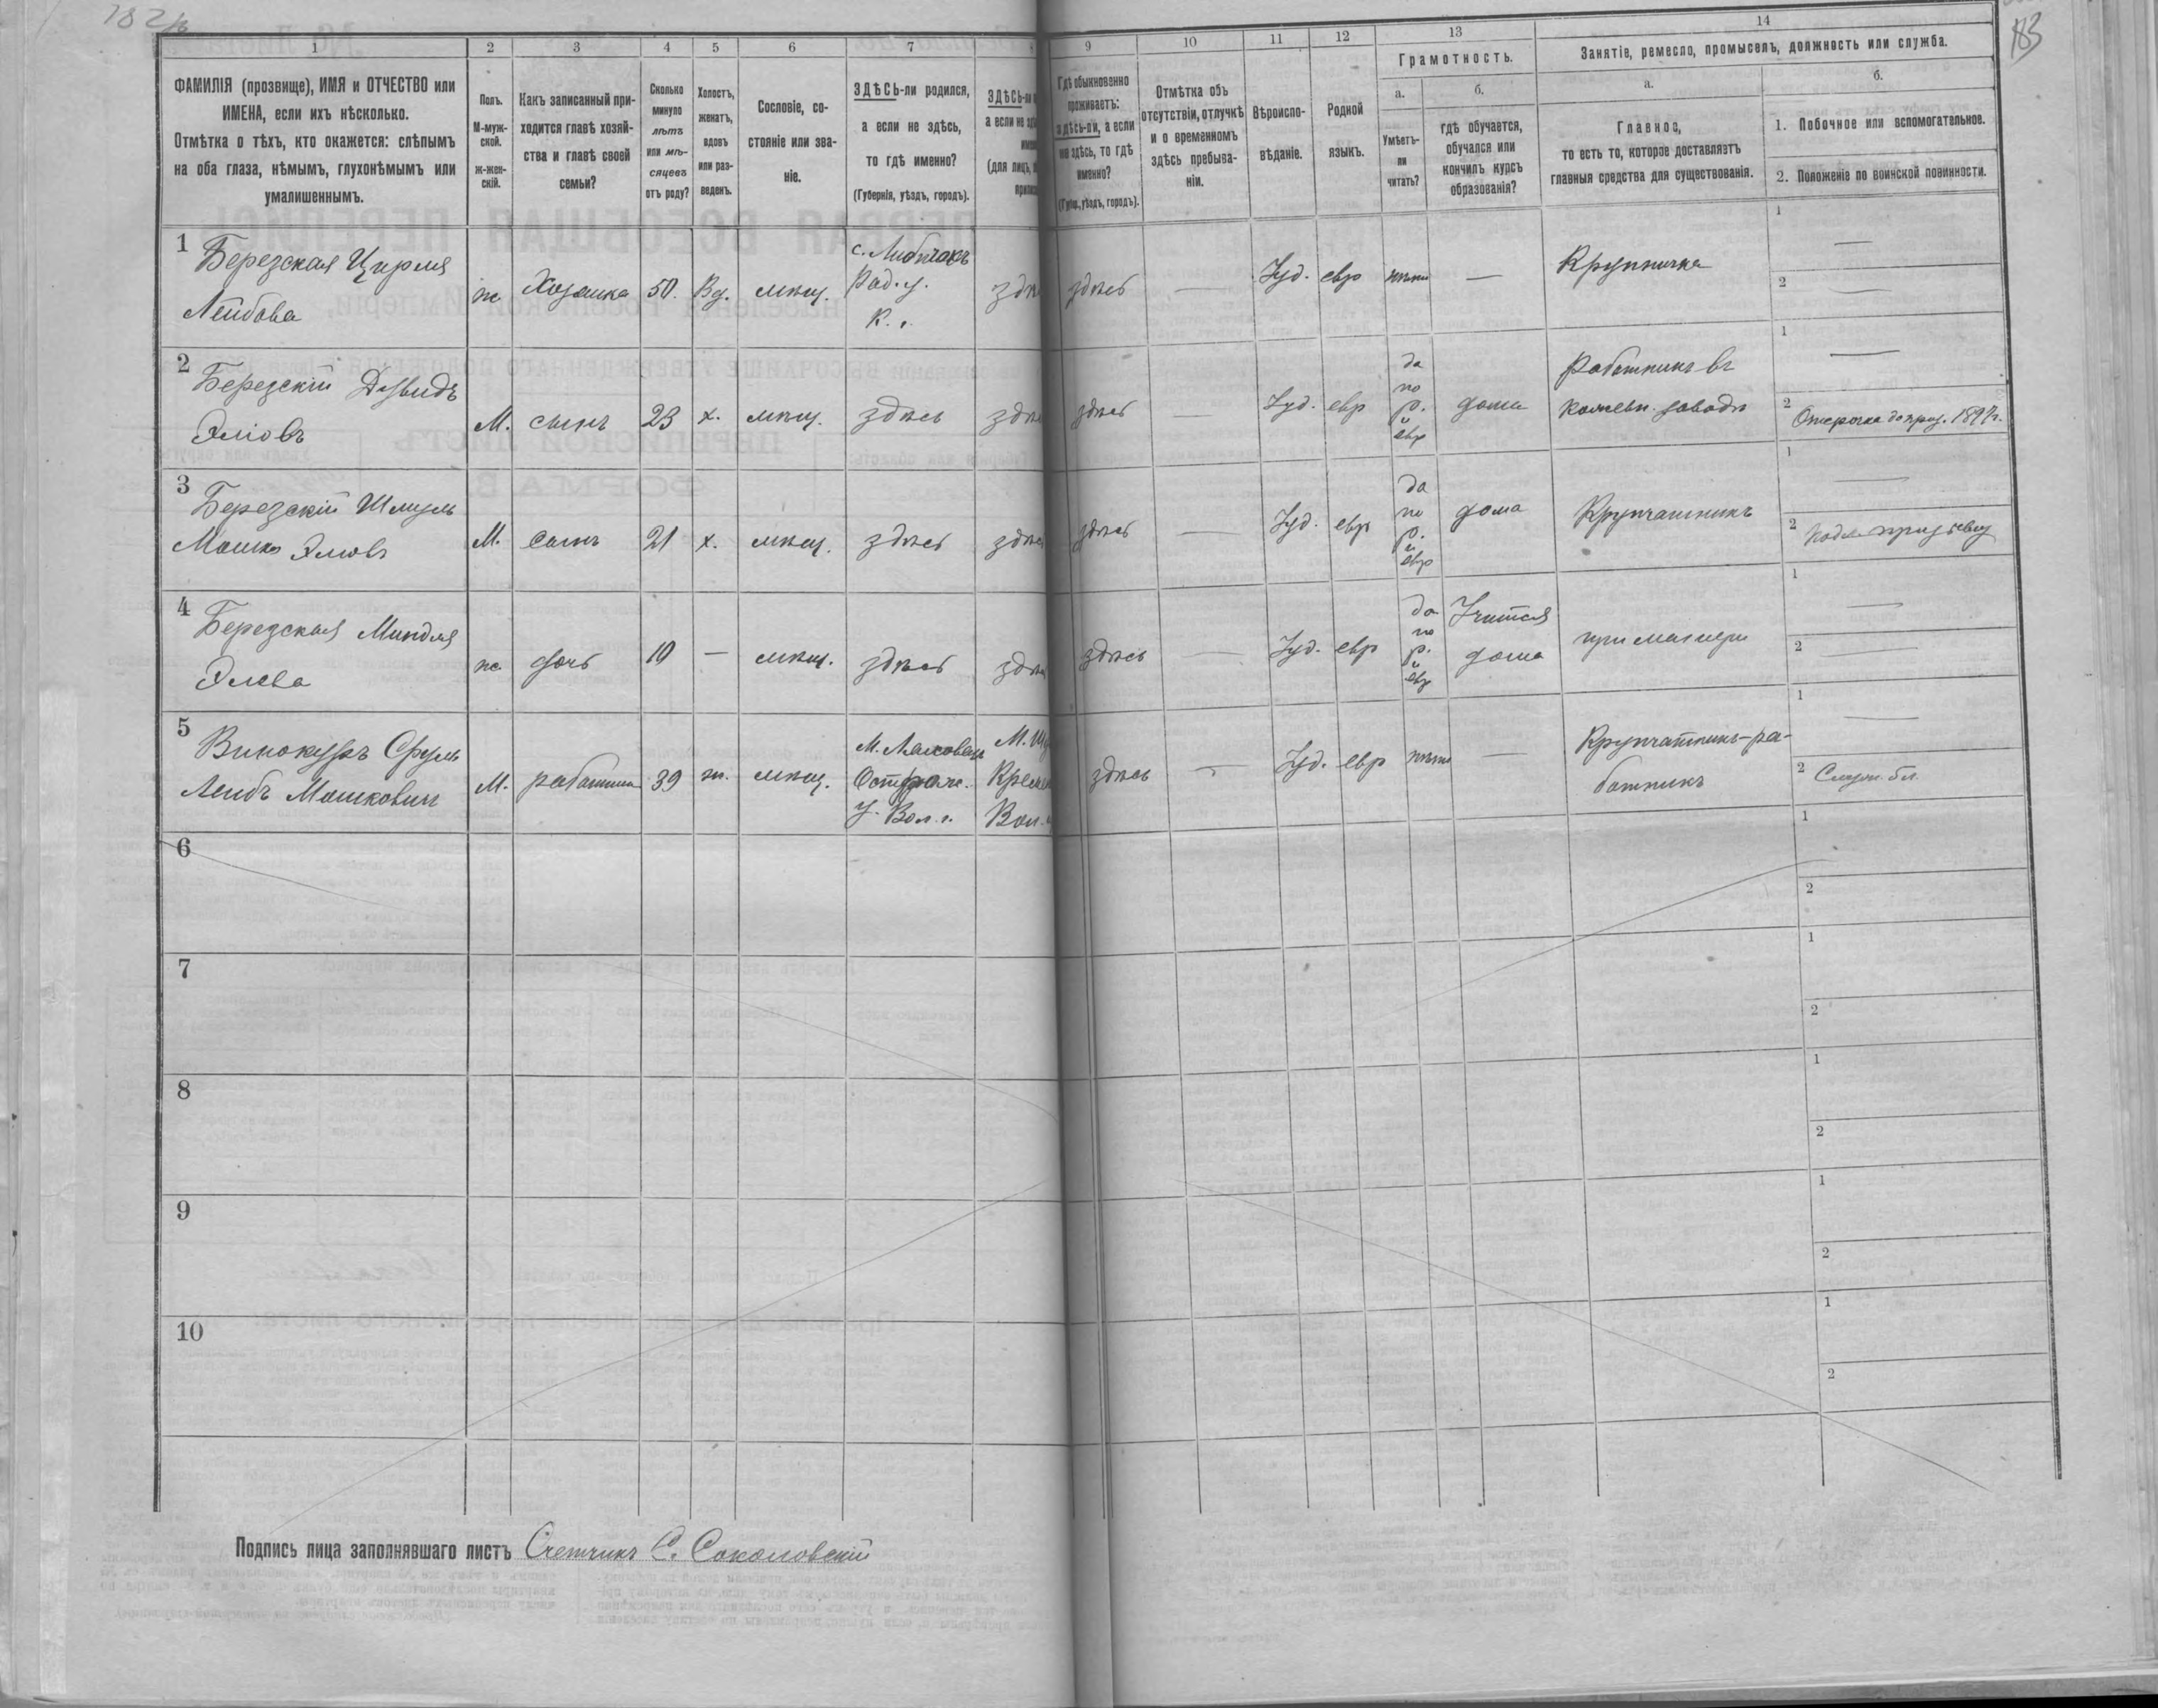 182
183
1
2
3
4
5
6
7
9
10
11
12
13
14
ФАМИЛІЯ (прозвище), ИМЯ и ОТЧЕСТВО или
ИМЕНА, если ихъ нѣсколько.
Отмѣтка о тѣхъ, кто окажется: слѣпымъ
на оба глаза, нѣмымъ, глухонѣмымъ или
умалишеннымъ.
Полъ.
М-муж-
ской.
ж-жен-
скій.
Какъ записанный при-
ходится главѣ хозяй-
ства и главѣ своей
семьи?
Сколько
минуло
лѣтъ
или мѣ-
сяцевъ
отъ роду?
Холостъ,
женатъ,
вдовъ
или раз-
веденъ.
Сословіе, со-
стояніе или зва-
ніе.
ЗДѢСЬ-ли родился,
а если не здѣсь,
то гдѣ именно?
(Губернія, уѣздъ, городъ).
ЗДѢСЬ-ли
а если не
(для лицъ,
Гдѣ обыкновенно
проживаетъ:
здѣсь-ли, а если
не здѣсь, то гдѣ
именно?
(Губ., уѣздъ, городъ).
Отмѣтка объ
отсутствіи, отлучкѣ
и о временномъ
здѣсь пребыва-
ніи.
Вѣроиспо-
вѣданіе.
Родной
языкъ.
Грамотность.
а.
Умѣетъ-
ли
читать?
б.
гдѣ обучается,
обучался или
кончилъ курсъ
образованія?
Занятіе, ремесло, промыселъ, должность или служба.
а.
Главное,
то есть то, которое доставляетъ
главныя средства для существованія.
б.
1. Побочное или вспомогательное.
2. Положеніе по воинской повинности.
1 Березская Цирля
Лейбова
ж Хозяйка 50. Вд. мѣщ.
Рад. у.
К. г.
здѣсь Іуд. евр нѣтъ —
1 —
2 —
2 Березскій Дувидъ
Эліовъ
М. сынъ 23 х. мѣщ. здѣсь
здѣсь — Іуд. евр
да
по
р.
и
евр
дома
Работникъ въ
кожевн. заводѣ
1 —
2 Отсрочка до приз. 1897 г.
3 Березскій Шмуль
Мошко Эліовъ
М. сынъ 21 х. мѣщ. здѣсь
здѣсь — Іуд. евр
да
по
р.
и
евр
дома
Крупчатникъ
1 —
2
4 Березская Миндля
Эліева
ж дочь 10 — мѣщ. здѣсь
здѣсь — Іуд. евр
да
по
р.
и
евр
Учится
дома
при матери
1 —
2 —
5 Винокуръ Сруль
Лейбъ Мошковичъ
М. работникъ 39 ж. мѣщ.
У. Вол. г.
здѣсь — Іуд. евр нѣтъ —
Крупчатникъ-ра-
ботникъ
1 —
2
6
1
2
7
1
2
8
1
2
9
1
2
10
1
2
Подпись лица заполнявшаго листъ Счетчикъ С. Соколовскій